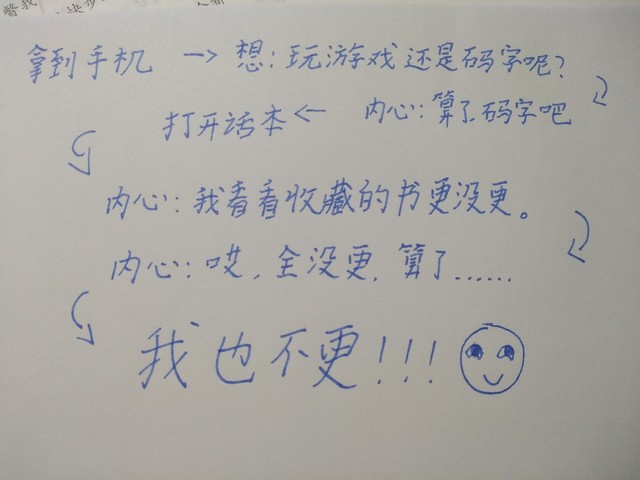 拿到手机 → 想：玩游戏还是码字呢？
打开话本 ← 内心：算了码字吧
内心：我看看收藏的书更没更。
内心：哎，全没更，算了……
我也不更！！！